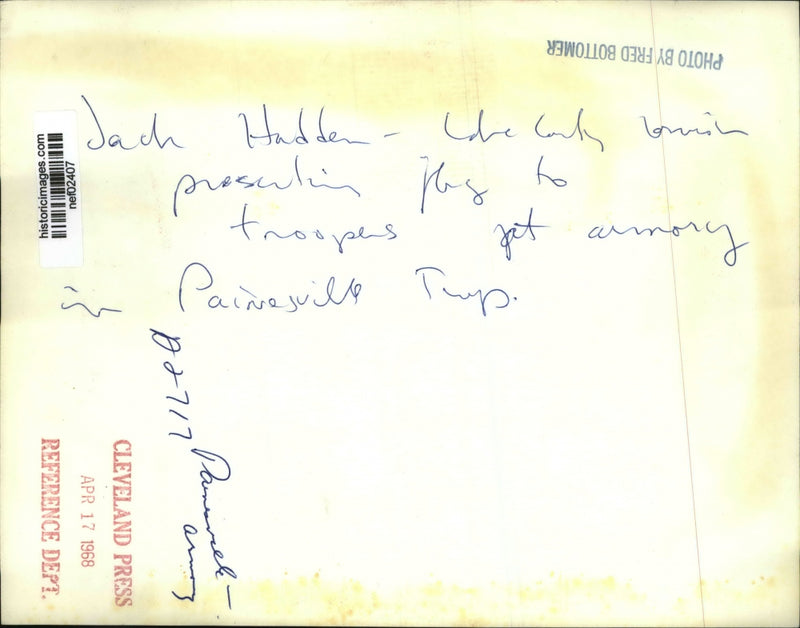 PHOTO BY FRED BOTTOMER
Jack Hadden - Lake County
presenting flag to
troopers at armory
in Painesville Twp.
historicimages.com
nef02407
D2717 Painesville -
armory
CLEVELAND PRESS
APR 17 1968
REFERENCE DEPT.